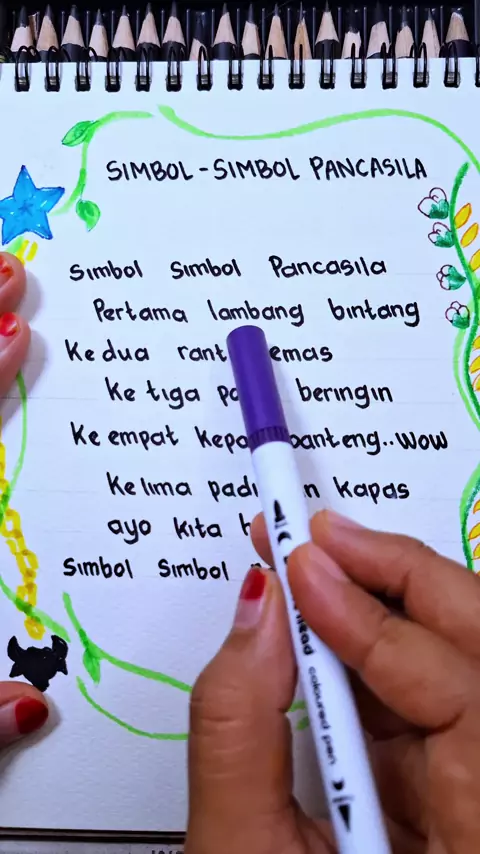 SIMBOL - SIMBOL PANCASILA
Simbol Simbol Pancasila
Pertama lambang bintang
Kedua emas
Ketiga beringin
Keempat banteng..wow
Kelima kapas
ayo kita
Simbol Simbol
coloured pen